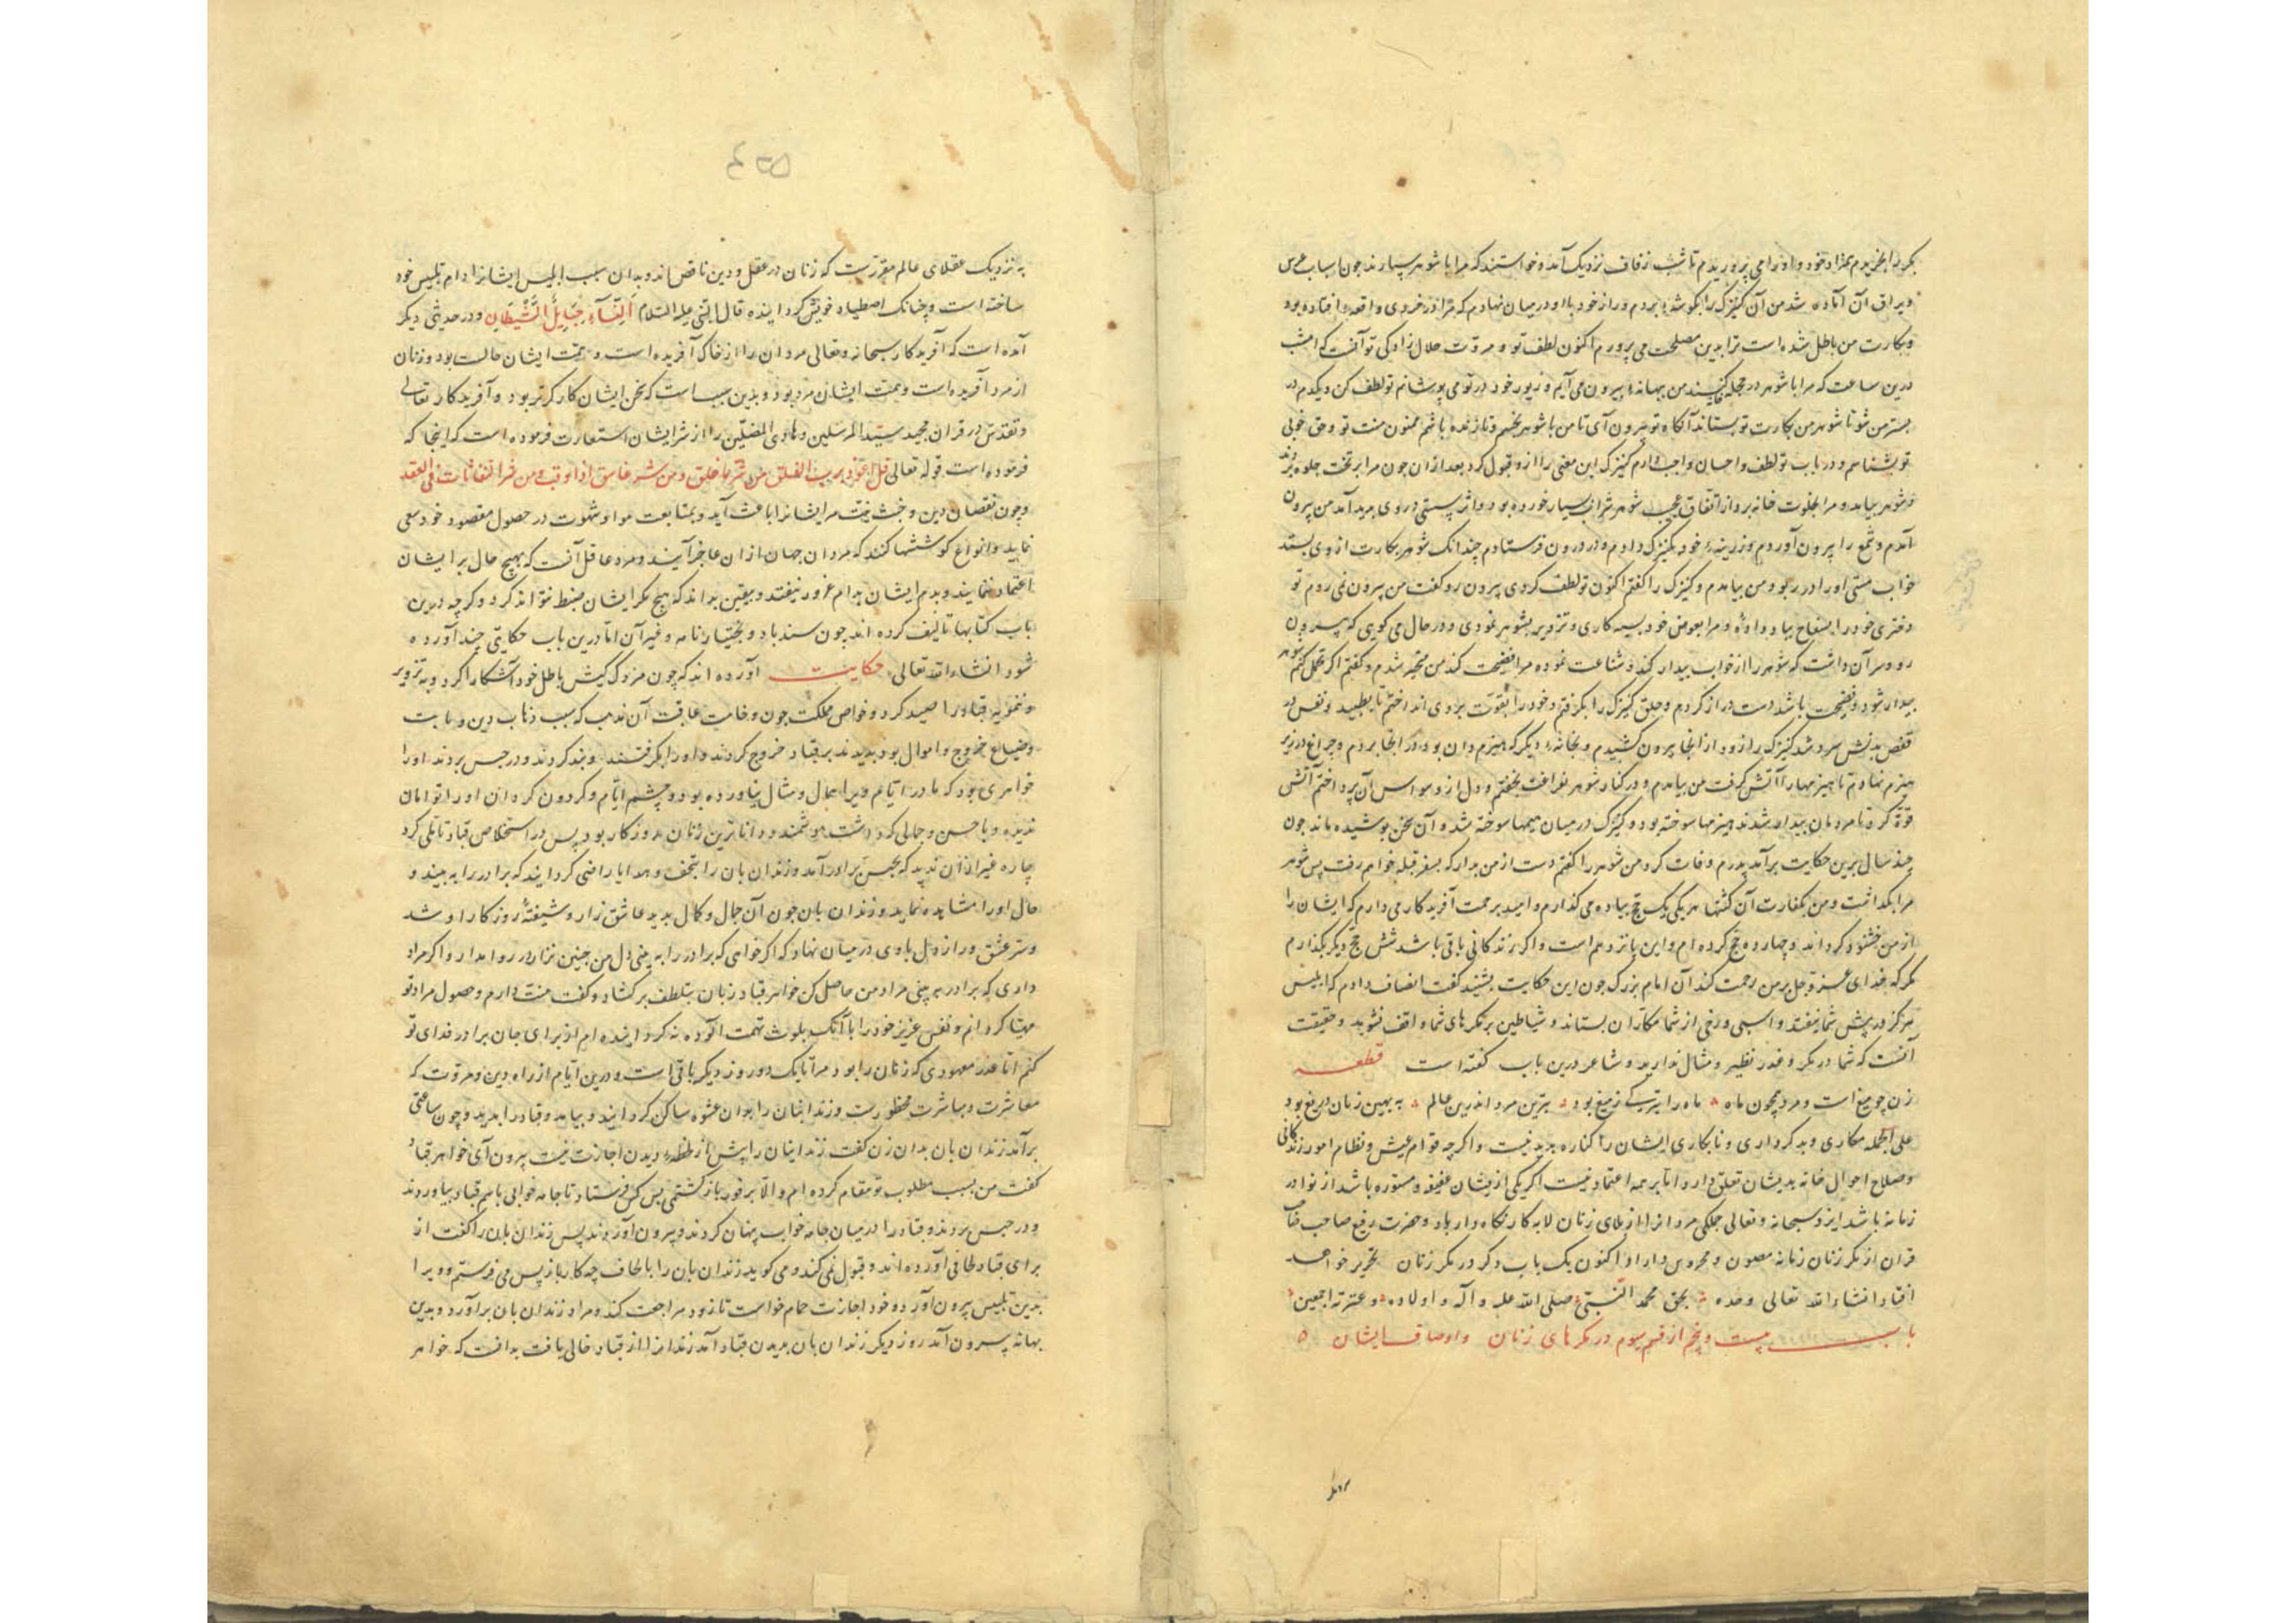 بکر را بخریدم بمراد خود و او را می پروریدم تا شب زفاف نزدیک آمد و خواستند که مرا با شوهر سپارند چون اسباب عرس
ویراق آن آماده شد من آن کنیزک را بگوشهٔ بردم و راز خود با او در میان نهادم که مرا در خردی واقعهٔ افتاده بود
وبکارت من باطل شده است ترا بدین مصلحت می پرورم اکنون لطف تو و مروّت حلال زادگی تو آنست که امشب
درین ساعت که مرا با شوهر در حجله کنند من ببهانهٔ بیرون می آیم و زیور خود در تو می پوشانم تو لطف کن و یکدم در
بستر من شو تا شوهر من بکارت تو بستاند آنگاه تو بیرون آی تا من با شوهر بخسپم و تا زنده باشم ممنون منت تو و حق خوبی
تو بشناسم و در باب تو لطف و احسان واجب دارم کنیزک این معنی را از من قبول کرد بعد از آن چون مرا بر تخت جلوه بردند
و شوهر بیامد و مرا بخلوت خانه برد از اتفاق عجب شوهر شراب بسیار خورده بود و اثر مستی در وی پدید آمد من بیرون
آمدم و شمع را بیرون آوردم و زرینهٔ خود بکنیزک دادم و در درون فرستادم چندانک شوهر بکارت از وی بستد
خواب مستی او را در ربود من بیامدم و کنیزک را گفتم اکنون تو لطف کردی بیرون رو گفت من بیرون نمی روم تو
دختری خود را بسفاح بباد دادهٔ و مرا بعوض خود بسیه کاری و تزویر بشوهر نمودی و در حال می گویی که بیرون
رو و سر آن داشت که شوهر را از خواب بیدار کند و شناعت نموده مرا فضیحت کند من متحیر شدم و گفتم اگر تحمل کنم شوهر
بیدار شود و فضیحت باشد دست دراز کردم و حلق کنیزک را بگرفتم و خود را بقوّت بر وی انداختم تا بطپید و نفس در
قفس بدنش سرد شد کنیزک را زود از آنجا بیرون کشیدم و بخانهٔ دیگر که هیزم دان بود در آنجا بردم و چراغ در زیر
هیزم نهادم تا هیزمها را آتش گرفت من بیامدم و در کنار شوهر بفراغت بخفتم و دل از وسواس آن پرداختم آتش
قوّة کرد تا مردمان بیدار شدند هیزمها سوخته بود و کنیزک در میان هیمها سوخته شد و آن سخن پوشیده ماند چون
چند سال برین حکایت برآمد پدرم وفات کرد من شوهر را گفتم دست از من بدار که بسفر قبله خواهم رفت پس شوهر
مرا بگذاشت و من بکفارت آن گنهها هر یکی یک حج پیاده می گذارم و امید برحمت آفریدگار می دارم که ایشان را
از من خشنود گرداند و چهارده حج کرده ام و این پانزدهم است و اگر زندگانی باقی باشد شش حج دیگر بگذارم
مگر که خدای عز و جل بر من رحمت کند آن امام بزرگ چون این حکایت بشنید گفت انصاف دادم که ابلیس
هرگز در پیش شما نیفتد و اسبی و رخی از شما مکّاران بستاند و شیاطین بر مکرهای شما واقف نشوید و حقیقت
آنست که شما در مکر و غدر نظیر و مثال ندارید و شاعر درین باب گفته است قطعه
زن چو میغ است و مرد همچون ماه ماه را تیرگی ز میغ بود بترین مرد اندرین عالم به بهین زنان دریغ بود
علی الجمله مکاری و بدکرداری و نابکاری ایشان را کناره پدید نیست و اگر چه قوام عیش و نظام امور زندگانی
وصلاح احوال خانه بدیشان تعلق دارد اما بر همه اعتماد نیست اگر یکی ازیشان عفیفه و مستوره باشد از نوادر
زمانه باشد ایزد سبحانه و تعالی جملگی مردانرا از بلای زنان لابه کار نگاه داراد و حضرت رفیع صاحب
قران از مکر زنان زمانه مصون و محروس داراد و اکنون یک باب دگر در مکر زنان تحریر خواهد
افتاد انشاءالله تعالی وحده بحق محمد النبیّ صلی الله علیه و آله و اولاده و عترته اجمعین
باب بیست و پنجم از قسم سوم در مکرهای زنان و اوصاف ایشان
به نزدیک عقلای عالم مقررست که زنان در عقل و دین ناقص اند و بدان سبب ابلیس ایشانرا دام تلبیس خود
ساخته است و چنانک اصطیاد خویش گردانیده قال النّبی علیه السّلام اَلنِّسَآءُ حَبَایِلُ الشَّیطَانِ و در حدیثی دیگر
آمده است که آفریدگار سبحانه و تعالی مردان را از خاک آفریده است و همّت ایشان خاکست بود و زنان
از مرد آفریده است و همت ایشان مرد بود و بدین سبب است که سخن ایشان کارگرتر بود و آفریدگار تعالی
و تقدس در قران مجید سیّد المرسلین و هادی المضلّین را از شر ایشان استعارت فرموده است که اینجا که
فرموده است قوله تعالی قل اعوذ برب الفلق من شر ما خلق و من شر غاسق اذا وقب و من شر النفاثات فی العقد
و چون نقصان دین و خبث نیت مر ایشانرا باعث آید و بمتابعت هوا و شهوت در حصول مقصود خود سعی
نمایند و انواع کوششها کنند که مردان جهان از ان عاجز آیند و مرد عاقل آنست که بهیچ حال بر ایشان
اعتماد ننمایند و بدم ایشان بدام غرور نیفتد و بیقین بداند که هیچ مکر ایشان ضبط نتواند کرد و گرچه درین
باب کتابها تالیف کرده اند چون سندباد و بختیارنامه و غیر آن اما درین باب حکایتی چند آورده
شود انشاءالله تعالی حکایت آورده اند که چون مزدک کیش باطل خود آشکارا کرد و به تزویر
و تمویه قباد را صید کرد و خواص مملکت چون وخامت عاقبت آن مذهب که سبب ذهاب دین و بابت
و ضیاع خروج و اموال بود بدیدند بر قباد خروج کردند و او را بگرفتند و بند کردند و در حبس بردند او را
خواهری بود که مادر ایام ویرا همال و مثال نیاورده بود و چشم ایّام و گردون گردان او را توامان
ندیده و با حسن و جمالی که داشت هوشمند و داناترین زنان روزگار بود پس در استخلاص قباد تأملی کرد
چاره غیر از آن ندید که بحبس برادر آمد و زندان بان را بتحف و هدایا راضی گردانید که برادر را به بیند و
حال او را مشاهده نماید و زندان بان چون آن جمال و کمال بدید عاشق زار و شیفتهٔ روزگار او شد
و سرّ عشق و راز دل با وی در میان نهاد که اگر خواهی که برادر را به بینی دل من چنین نزار روا مدار و اگر مراد
داری که برادر به بینی مراد من حاصل کن خواهر قباد زبان بتلطف برگشاد و گفت منت دارم و حصول مراد تو
مهیّا گردانم و نفس عزیز خود را با آنک بلوث تهمت آلوده نه گردانیده ام از برای جان برادر فدای تو
کنم امّا عذر معهودی که زنان را بود مرا تا یک دو روز دیگر باقی است و درین ایّام از راه دین و مروّت که
معاشرت و مباشرت محظورست و زندانبان را بدان عشوه ساکن گردانید و بیامد و قباد را بدید و چون ساعتی
برآمد زندان بان بدان زن گفت زندانیان را بیش از لحظهٔ دیدن اجازت نیست بیرون آی خواهر قباد
گفت من بسبب مطلوب تو مقام کرده ام و الّا بر فور بازگشتمی پس کس فرستاد تا جامه خوابی باسم قباد بیاوردند
و در حبس بردند و قباد را در میان جامه خواب پنهان کردند و بیرون آوردند پس زندان بان را گفت از
برای قباد لحافی آورده اند و قبول نمی کند و می گوید زندان بان را با لحاف چه کار باز پس می فرستم و ویرا
بدین تلبیس بیرون آورد و خود اجازت حمام خواست تا زود مراجعت کند و مراد زندان بان برآورد و بدین
بهانه بیرون آمد روز دیگر زندان بان بدیدن قباد آمد زندانرا از قباد خالی یافت بدانست که خواهر